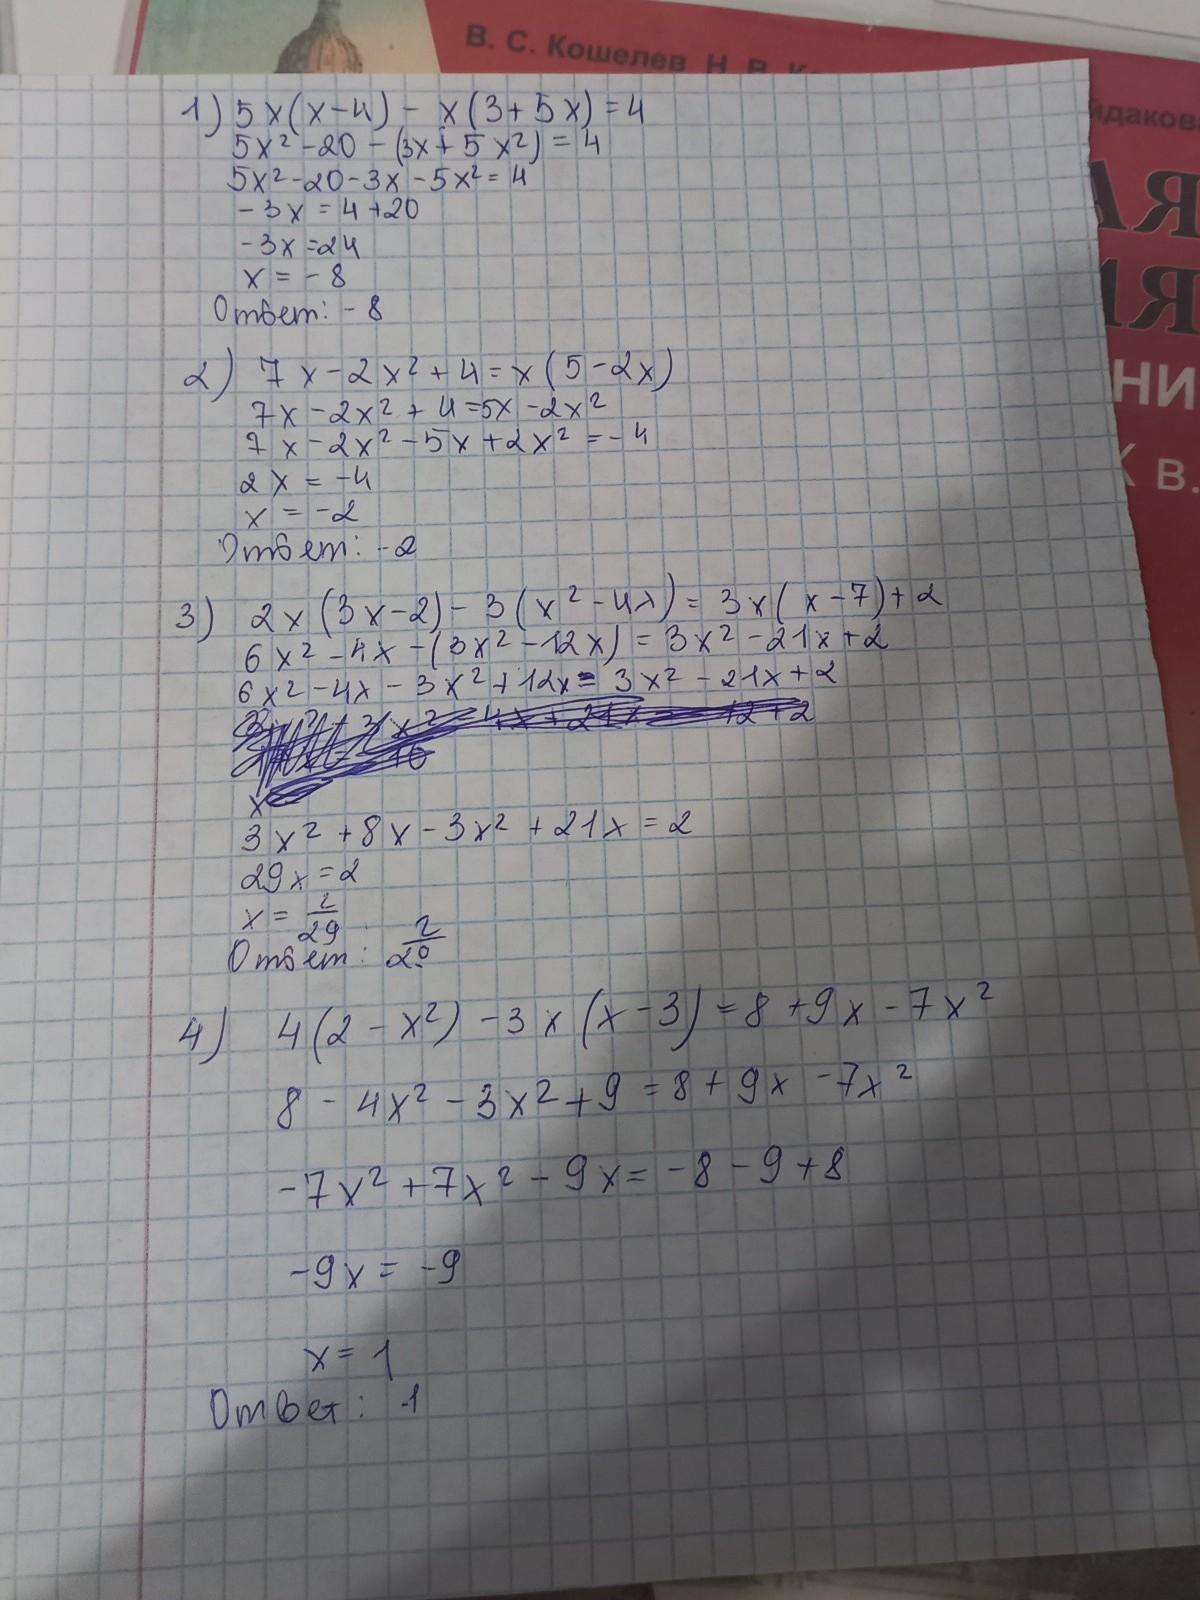 В. С. Кошелев Н. В.
йдакова
НИ
В.
1) 5x(x-4) - x(3+5x)=4
5x²-20-(3x+5x²)=4
5x²-20-3x-5x²=4
-3x=4+20
-3x=24
x=-8
Ответ: -8
2) 7x-2x²+4=x(5-2x)
7x-2x²+4=5x-2x²
7x-2x²-5x+2x²=-4
2x=-4
x=-2
Ответ: -2
3) 2x(3x-2)-3(x²-4x)=3x(x-7)+2
6x²-4x-(3x²-12x)=3x²-21x+2
6x²-4x-3x²+12x=3x²-21x+2
x
3x²+8x-3x²+21x=2
29x=2
x=2/29
Ответ: 2/29
4) 4(2-x²)-3x(x-3)=8+9x-7x²
8-4x²-3x²+9=8+9x-7x²
-7x²+7x²-9x=-8-9+8
-9x=-9
x=1
Ответ: 1